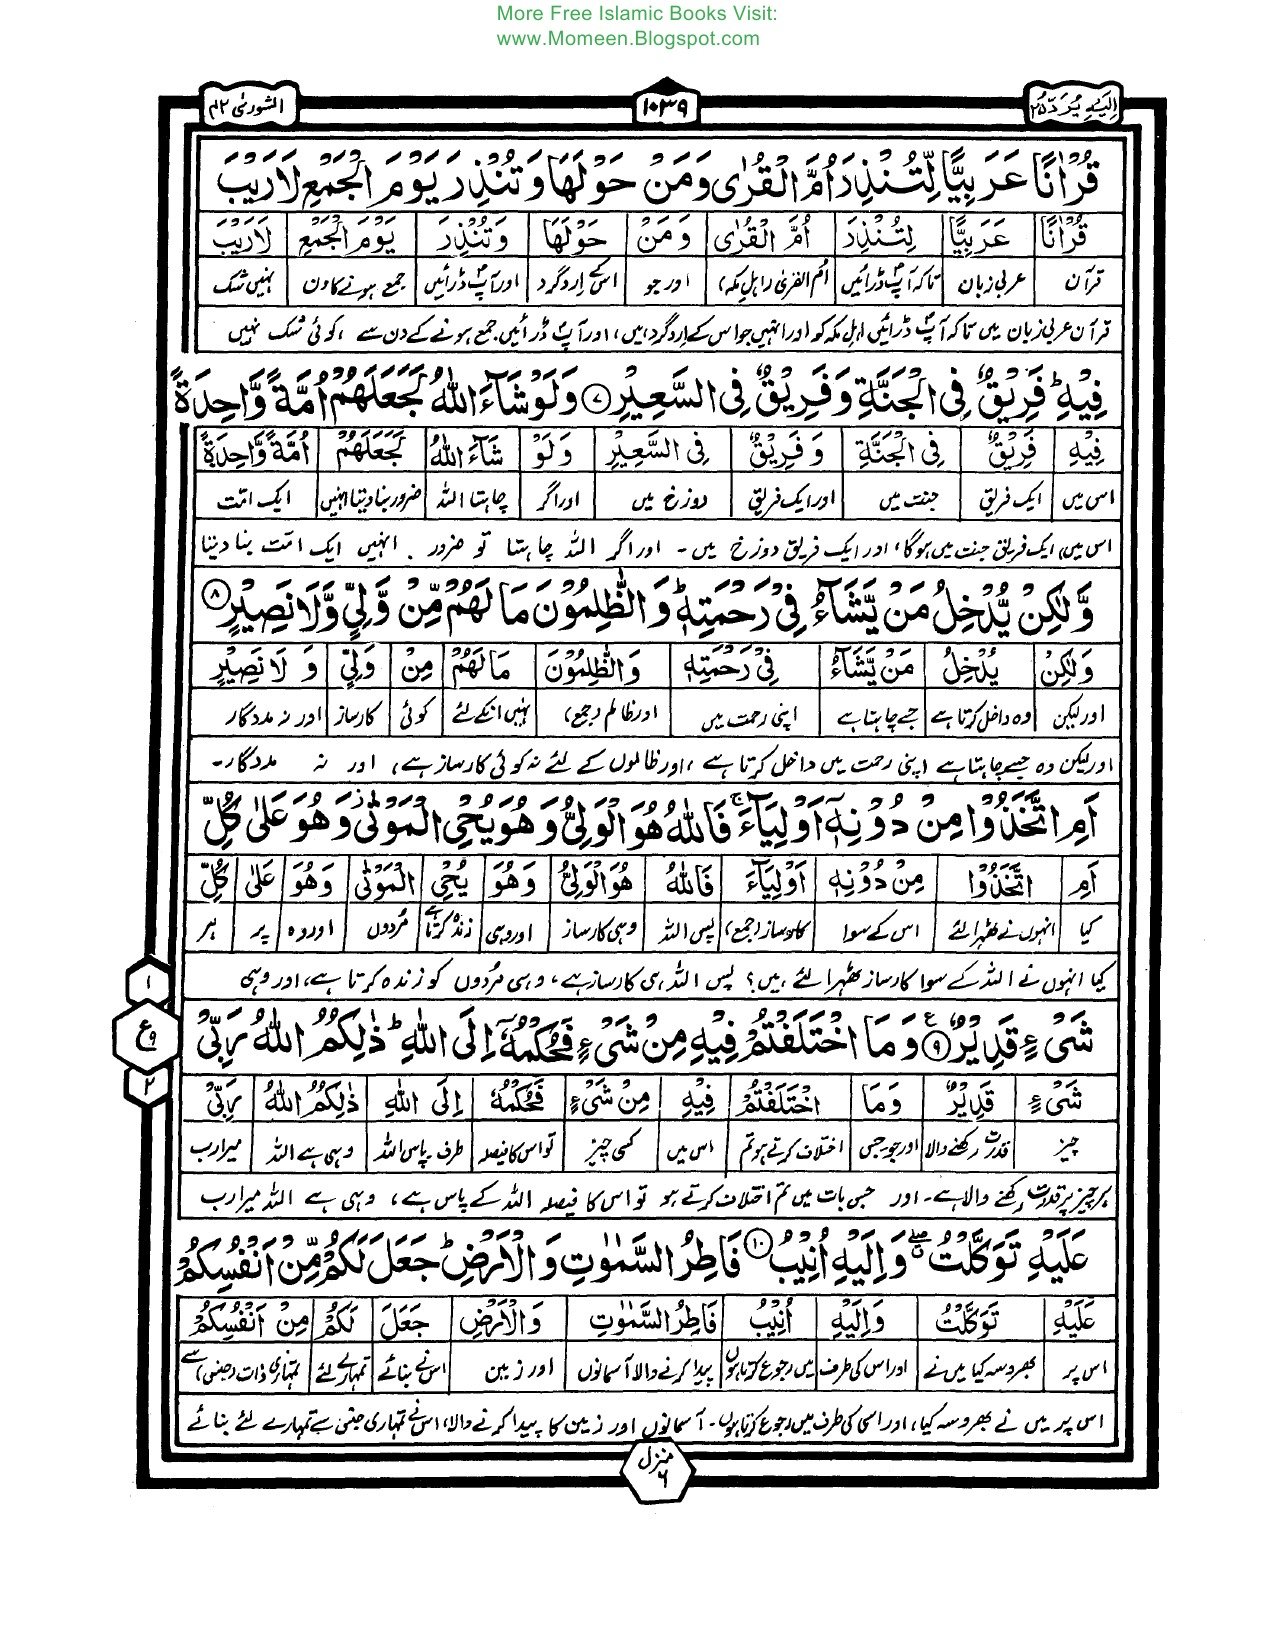 More Free Islamic Books Visit:
www.Momeen.Blogspot.com
اِلَیْهِ یُرَدُّ ۲۵
۱۰۳۹
الشورىٰ ۴۲
قُرْاٰنًا عَرَبِیًّا لِّتُنْذِرَ اُمَّ الْقُرٰی وَمَنْ حَوْلَهَا وَتُنْذِرَ یَوْمَ الْجَمْعِ لَا رَیْبَ
قُرْاٰنًا عَرَبِیًّا لِتُنْذِرَ اُمَّ الْقُرٰی وَمَنْ حَوْلَهَا وَتُنْذِرَ یَوْمَ الْجَمْعِ لَا رَیْبَ
قرآن عربی زبان تاکہ آپؐ ڈرائیں اُم القریٰ (اہلِ مکہ) اور جو اسکے اِردگرد اور آپؐ ڈرائیں جمع ہونے کا دن نہیں شک
قرآن عربی زبان میں تاکہ آپؐ ڈرائیں اہلِ مکہ کو اور انہیں جو اس کے اِردگرد ہیں، اور آپؐ ڈرائیں جمع ہونے کے دن سے ، کوئی شک نہیں
فِیْهِ ؕ فَرِیْقٌ فِی الْجَنَّةِ وَفَرِیْقٌ فِی السَّعِیْرِ ۷ وَلَوْ شَآءَ اللّٰهُ لَجَعَلَهُمْ اُمَّةً وَّاحِدَةً
فِیْهِ فَرِیْقٌ فِی الْجَنَّةِ وَفَرِیْقٌ فِی السَّعِیْرِ وَلَوْ شَآءَ اللّٰهُ لَجَعَلَهُمْ اُمَّةً وَّاحِدَةً
اس میں ایک فریق جنت میں اور ایک فریق دوزخ میں اور اگر چاہتا اللہ ضرور بنا دیتا انہیں ایک امت
اس میں، ایک فریق جنت میں ہوگا، اور ایک فریق دوزخ میں ۔ اور اگر اللہ چاہتا تو ضرور . انہیں ایک امت بنا دیتا
وَّلٰكِنْ یُّدْخِلُ مَنْ یَّشَآءُ فِیْ رَحْمَتِهٖ ؕ وَالظّٰلِمُوْنَ مَا لَهُمْ مِّنْ وَّلِیٍّ وَّلَا نَصِیْرٍ ۸
وَلٰكِنْ یُدْخِلُ مَنْ یَّشَآءُ فِیْ رَحْمَتِهٖ وَالظّٰلِمُوْنَ مَا لَهُمْ مِنْ وَلِیٍّ وَ لَا نَصِیْرٍ
اور لیکن وہ داخل کرتا ہے جسے چاہتا ہے اپنی رحمت میں اور ظالم (جمع) نہیں انکے لئے کوئی کارساز اور نہ مددگار
اور لیکن وہ جسے چاہتا ہے اپنی رحمت میں داخل کرتا ہے ، اور ظالموں کے لئے نہ کوئی کارساز ہے، اور نہ مددگار ۔
اَمِ اتَّخَذُوْا مِنْ دُوْنِهٖۤ اَوْلِیَآءَ ۚ فَاللّٰهُ هُوَ الْوَلِیُّ وَهُوَ یُحْیِ الْمَوْتٰی ؗ وَهُوَ عَلٰی كُلِّ
اَمِ اتَّخَذُوْا مِنْ دُوْنِهٖ اَوْلِیَآءَ فَاللّٰهُ هُوَ الْوَلِیُّ وَهُوَ یُحْیِ الْمَوْتٰی وَهُوَ عَلٰی كُلِّ
کیا انہوں نے ٹھہرا لئے اس کے سوا کارساز (جمع) پس اللہ وہی کارساز اور وہی زندہ کرتا ہے مُردوں اور وہ پر ہر
کیا انہوں نے اللہ کے سوا کارساز ٹھہرا لئے ہیں؟ پس اللہ ہی کارساز ہے، وہی مُردوں کو زندہ کرتا ہے، اور وہی
۱
ع
۹
۲
شَیْءٍ قَدِیْرٌ ۹ وَمَا اخْتَلَفْتُمْ فِیْهِ مِنْ شَیْءٍ فَحُكْمُهٗۤ اِلَی اللّٰهِ ؕ ذٰلِكُمُ اللّٰهُ رَبِّیْ
شَیْءٍ قَدِیْرٌ وَمَا اخْتَلَفْتُمْ فِیْهِ مِنْ شَیْءٍ فَحُكْمُهٗ اِلَی اللّٰهِ ذٰلِكُمُ اللّٰهُ رَبِّیْ
چیز قدرت رکھنے والا اور جو جس اختلاف کرتے ہو تم اس میں کسی چیز تو اس کا فیصلہ طرف ، پاس اللہ وہی ہے اللہ میرا رب
ہر چیز پر قدرت رکھنے والا ہے ۔ اور جس بات میں تم اختلاف کرتے ہو تو اس کا فیصلہ اللہ کے پاس ہے، وہی ہے اللہ میرا رب
عَلَیْهِ تَوَكَّلْتُ ۖ وَاِلَیْهِ اُنِیْبُ ۱۰ فَاطِرُ السَّمٰوٰتِ وَالْاَرْضِ ؕ جَعَلَ لَكُمْ مِّنْ اَنْفُسِكُمْ
عَلَیْهِ تَوَكَّلْتُ وَاِلَیْهِ اُنِیْبُ فَاطِرُ السَّمٰوٰتِ وَالْاَرْضِ جَعَلَ لَكُمْ مِنْ اَنْفُسِكُمْ
اس پر بھروسہ کیا میں نے اور اس کی طرف میں رجوع کرتا ہوں پیدا کرنے والا آسمانوں اور زمین اس نے بنائے تمہارے لئے تمہاری ذات (جنس) سے
اس پر میں نے بھروسہ کیا، اور اسی کی طرف میں رجوع کرتا ہوں ۔ آسمانوں اور زمین کا پیدا کرنے والا، اس نے تمہاری جنس سے تمہارے لئے بنائے
منزل
۶